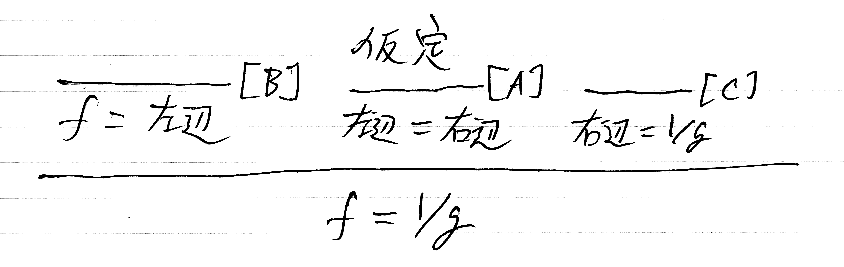 仮定
[B] [A] [C]
f = 左辺 左辺 = 右辺 右辺 = 1/g
f = 1/g